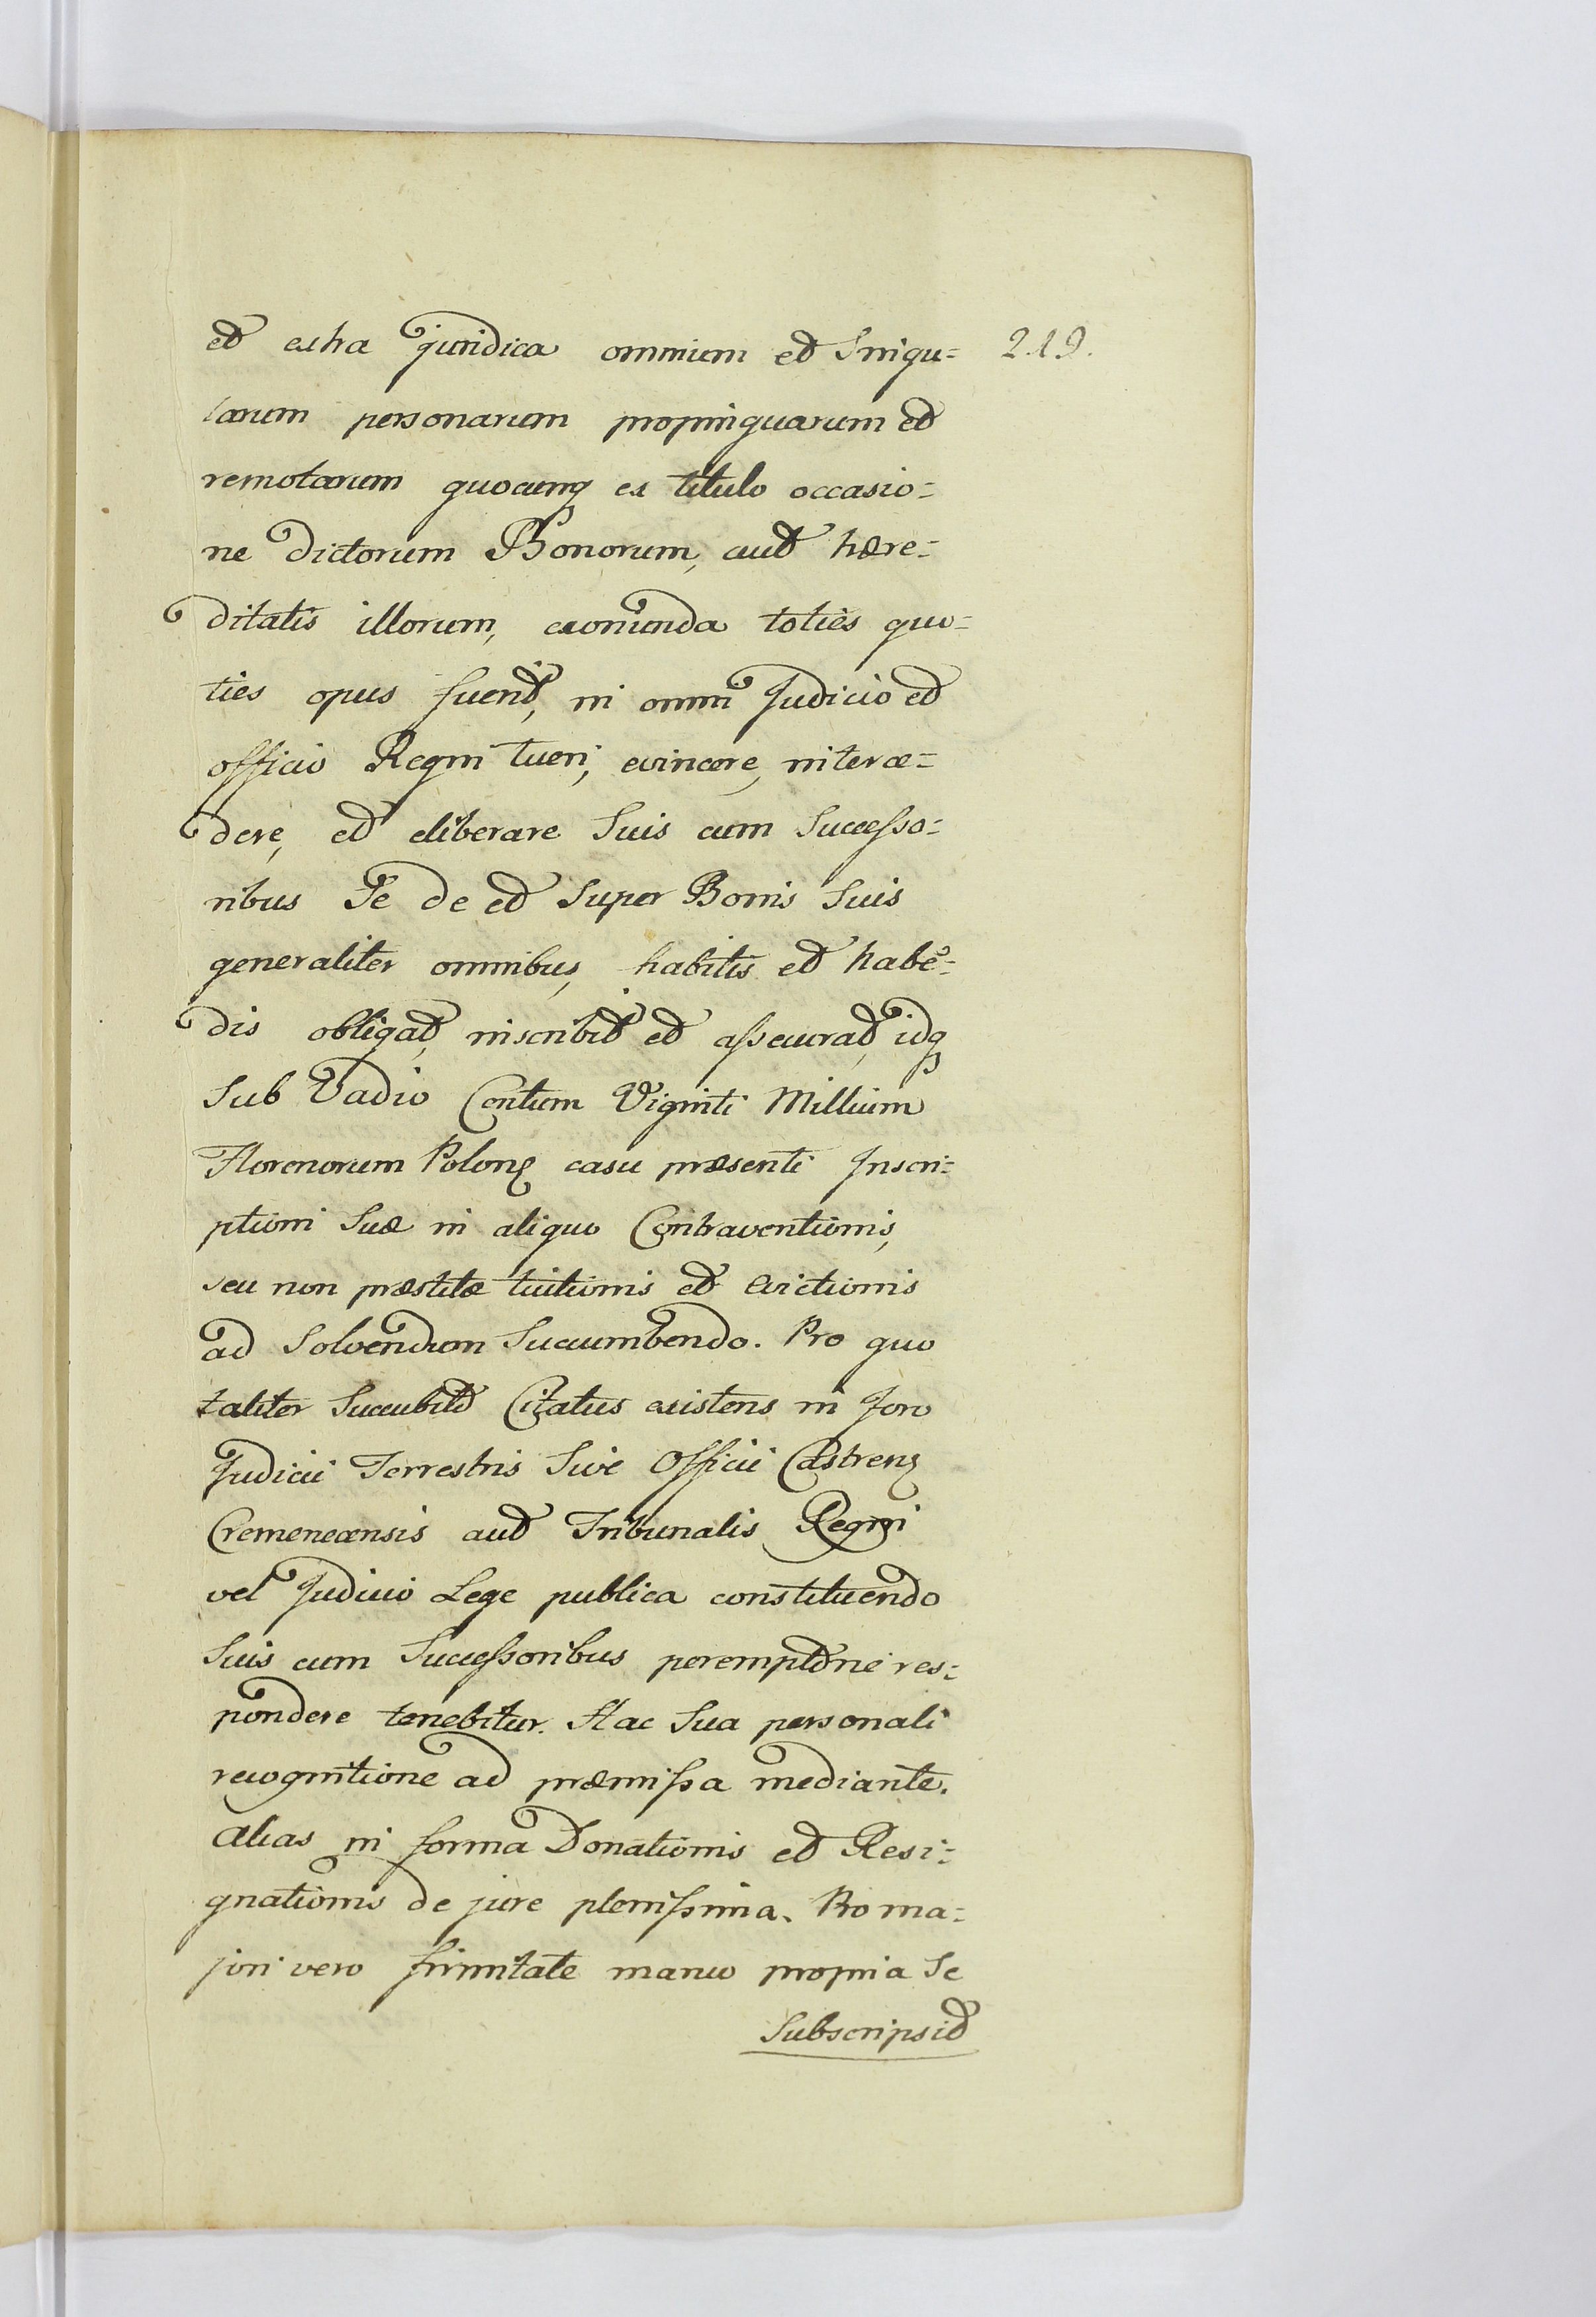 et extra juridica omnium et Singu= 219.
larum personarum propinquarum et
remotarum quocunq ex titulo occasio=
ne dictorum Bonorum, aut hære=
ditatis illorum, exoriunda toties quo=
ties opus fuerit, in omni Judicio et
officio Regni tueri, evincere, interce=
dere, et eliberare Suis cum Successo=
ribus Se de et Super Bonis Suis
generaliter omnibus, habitis et habē=
dis obligat, inscribit et assecurat, idq
Sub Vadio Centum Viginti Millium
Florenorum Polonq casu præsenti Inscri=
ptioni Suæ in aliquo Contraventionis,
seu non præstitæ tuitionis et Evictionis
ad Solvendum Succumbendo. Pro quo
taliter Succubito Citatus existens in foro
Judicii Terrestris Sive Officii Castrenq
Cremenecensis aut Tribunalis Regni
vel Judicio Lege publica constituendo
Suis cum Successoribus peremptorie res=
pondere tenebitur. Hac Sua personali
recognitione ad præmissa mediante.
Alias in forma Donationis et Resi=
gnationis de jure plenissima. Pro ma=
jori vero firmitate manu propria Se
Subscripsit